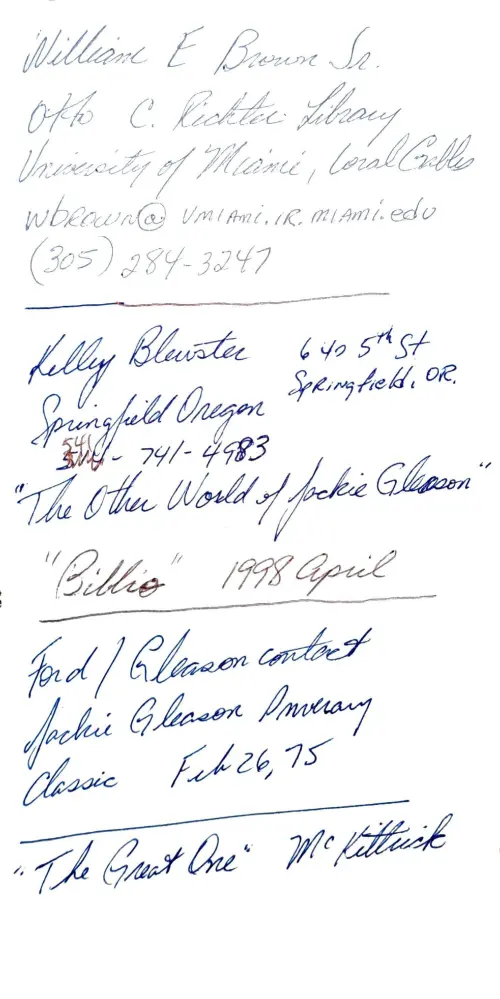 William E Brown Jr.
Otto C. Richter Library
University of Miami, Coral Gables
wbrown@umiami.ir.miami.edu
(305) 284-3247
Kelley Blewster
640 5th St
Springfield, OR.
Springfield Oregon
541 - 741-4983
"The Other World of Jackie Gleason"
"Biblio" 1998 April
Ford / Gleason contact
Jackie Gleason Inverary
Classic Feb 26, 75
"The Great One" McKittrick